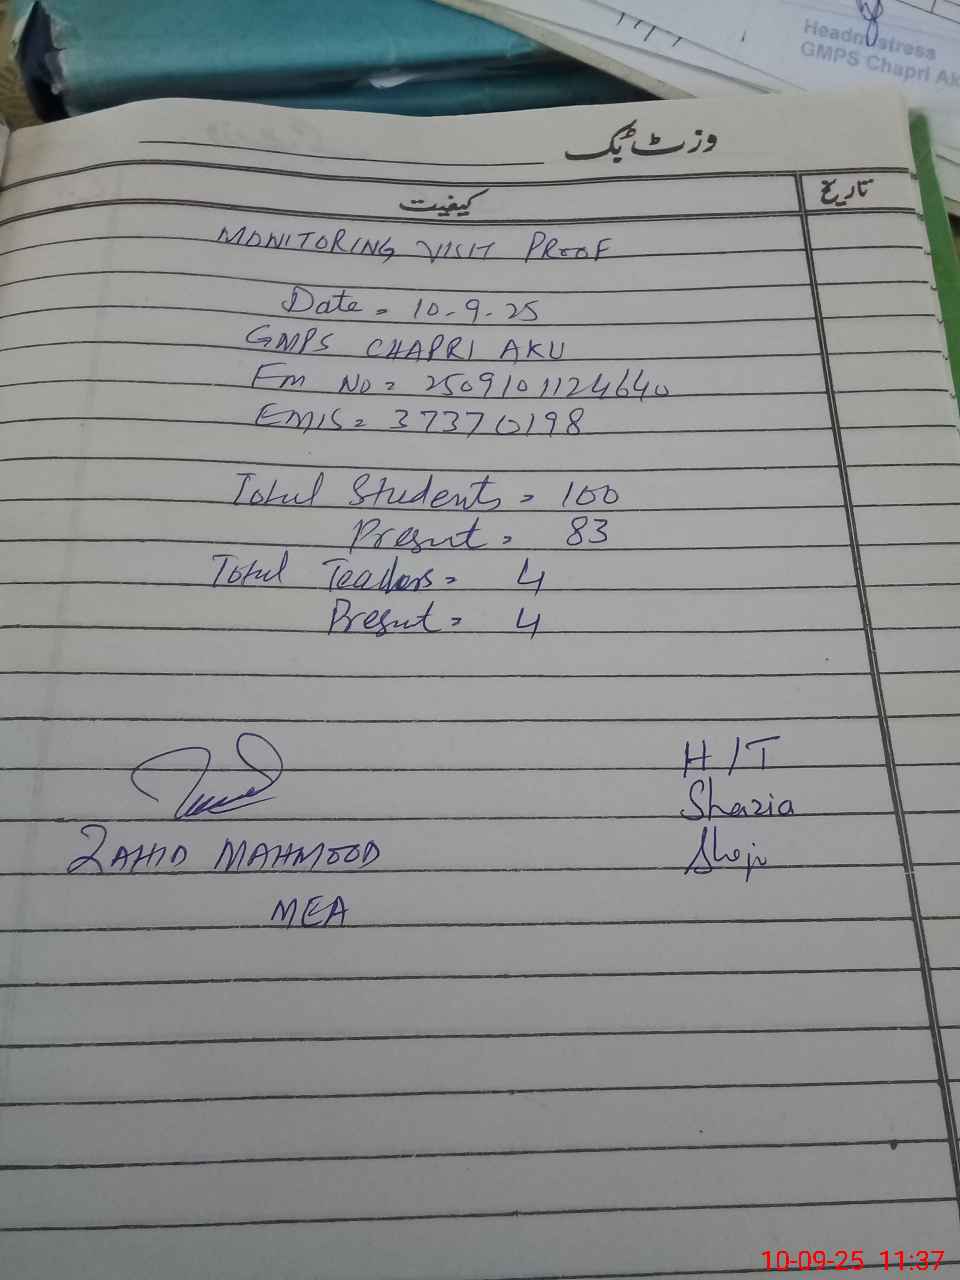 Headmistress
GMPS Chapri Ak
وزٹ بک
تاریخ
کیفیت
MONITORING VISIT PROOF
Date = 10-9-25
GMPS CHAPRI AKU
Em No = 2509101124640
EMIS = 37370198
Total Students = 100
Present = 83
Total Teachers = 4
Present = 4
H/T
Shazia
ZAHID MAHMOOD
MEA
10-09-25 11:37